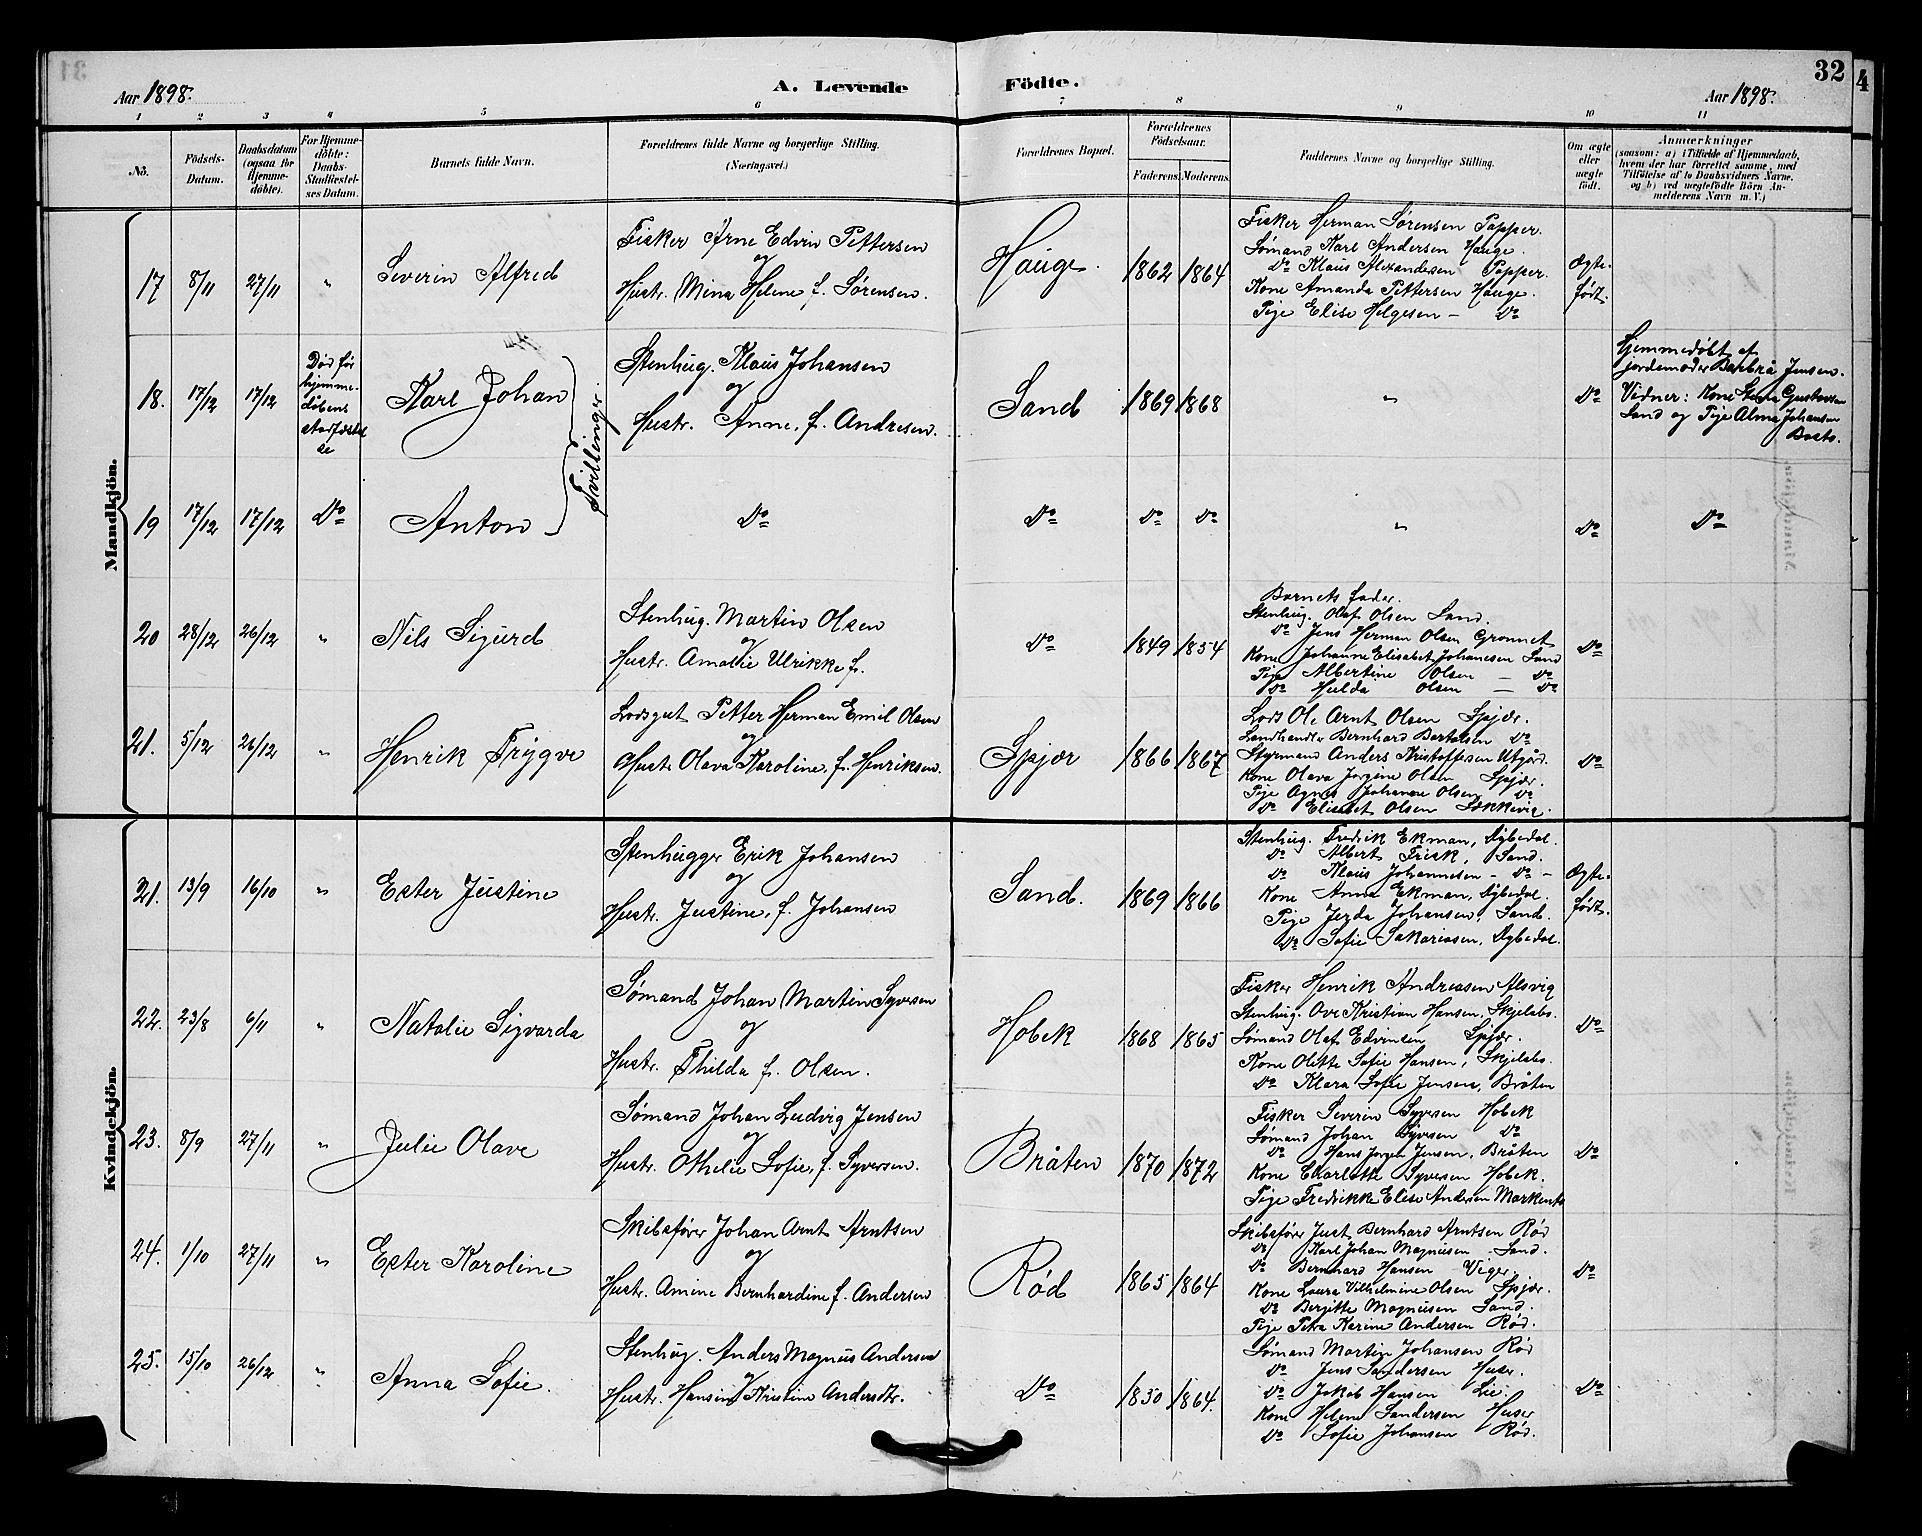 Aar 1898. A. Levende Födte. Aar 1898. 32
1 2 3 4 5 6 7 8 9 10 11
No.
Födsels-Datum.
Daabsdatum (ogsaa for Hjemme-döbte).
For Hjemme-döbte: Daabs-Stadfæstel-ses Datum.
Barnets fulde Navn.
Forældrenes fulde Navne og borgerlige Stilling.
(Næringsvei.)
Forældrenes Bopæl.
Forældrenes Födselsaar.
Faderens. Moderens.
Faddernes Navne og borgerlige Stilling.
Om ægte eller uægte födt.
Anmærkninger
(saasom: a) i Tilfælde af Hjemmedaab, hvem der har forrettet samme, med Tilföielse af to Daabsvidners Navne, og b) ved uægtefödte Börn An-melderens Navn m. V.)
Mandkjön.
17 8/11 27/11 " Severin Alfred
Fisker Arne Edvin Pettersen
og
Hustr. Mina Helene f. Sørensen.
Hauge. 1862 1864
Fisker Herman Sørensen Papper.
Sømand Karl Andersen Hauge.
Do Klaus Alexandersen Papper.
Kone Amanda Pettersen Hauge.
Pige Elise Helgesen - Do
Ægte-født.
18. 17/12 17/12
Død før
hjemme-
dåbens
stadfæstel
se
Karl Johan
Tvillinger
Stenhug. Klaus Johansen
og
Hustr. Anne, f. Andresen.
Sand 1869 1868 " Do
Hjemmedøbt af
jordemoder Barbra Jensen.
Vidner: Kone Stena Gustavsen
Sand og Pige Alma Johansen
19 17/12 17/12 Do Anton Do Do Do Do " Do Do
20 28/12 26/12 " Nils Sigurd
Stenhug. Martin Olsen
og
Hustr. Amalie Ulrikke f.
Do 1849 1854
Barnets fader.
Stenhug. Olaf Olsen Sand.
Do Jens Herman Olsen Grønnet
Kone Johanne Elisabet Johansen Sand
Pige Albertine Olsen - Do
Do Hulda Olsen - Do
Do
21. 5/12 26/12 " Henrik Trygve
Lodsgut Petter Herman Emil Olsen
og
Hustr Olava Karoline, f. Henriksen.
Spjær 1866 1867
Lods Ole Arnt Olsen Spjær.
Landhandler Bernhard Bertelsen Do
Styrmand Anders Kristoffersen Utgård.
Kone Olava Jørgine Olsen Spjær.
Pige Agnes Johanne Olsen Do
Do Elisabet Olsen Løkkevig.
Do
Kvindekjön.
21. 13/9 16/10 " Ester Justine
Stenhugger Erik Johansen
og
Hustr. Justine, f. Johansen
Sand. 1869 1866
Stenhug. Fredrik Ekman, Dybedal.
Do Albert Frisk, Sand.
Do Klaus Johannesen - Do -
Kone Anna Ekman, Dybedal.
Pige Jerda Johansen, Sand.
Do Sofie Sakariasen, Dybedal.
Ægte-født.
22. 23/8 6/11 " Natalie Sigvarda
Sømand Johan Martin Syversen
og
Hustr. Thilda f. Olsen.
Hobek 1868 1865
Fisker Henrik Andreasen Alsvig
Stenhug. Ove Kristian Hansen, Skjelsbo.
Sømand Olaf Edvinsen Spjær.
Kone Olitte Sofie Hansen, Skjelsbo.
Do Klara Sofie Jensen, Bråten
Do
23. 8/9 27/11 " Julie Olave
Sømand Johan Ludvig Jensen
og
Hustr. Othelie Sofie, f. Syversen.
Bråten 1870 1872
Fisker Severin Syversen Hobek
Sømand Johan Syversen Do
Do Hans Jørgen Jensen, Bråten
Kone Charlotte Syversen Hobek.
Pige Fredrikke Elise Andersen
Do
24. 1/10 27/11 " Ester Karoline
Skibsfører Johan Arnt Arntsen
og
Hustr. Amine Bernhardine f. Andersen
Rød 1865 1864
Skibsfører Just Bernhard Arntsen Rød
Do Karl Johan Magnusen Sand.
Do Bernhard Hansen Viger.
Kone Laura Vilhelmine Olsen Spjær.
Do Bergitte Magnusen Sand.
Pige Petra Karine Andersen Rød.
Do
25. 15/10 26/12 " Anna Sofie.
Stenhug. Anders Magnus Andersen
og
Hustr. Hansine Kristine Andersdtr.
Do 1830 1864.
Sømand Martin Johansen Rød
Do Jens Sandersen Huser.
Do Jakob Hansen Lie.
Kone Helene Sandersen Huser
Do Sofie Johansen Rød.
Do